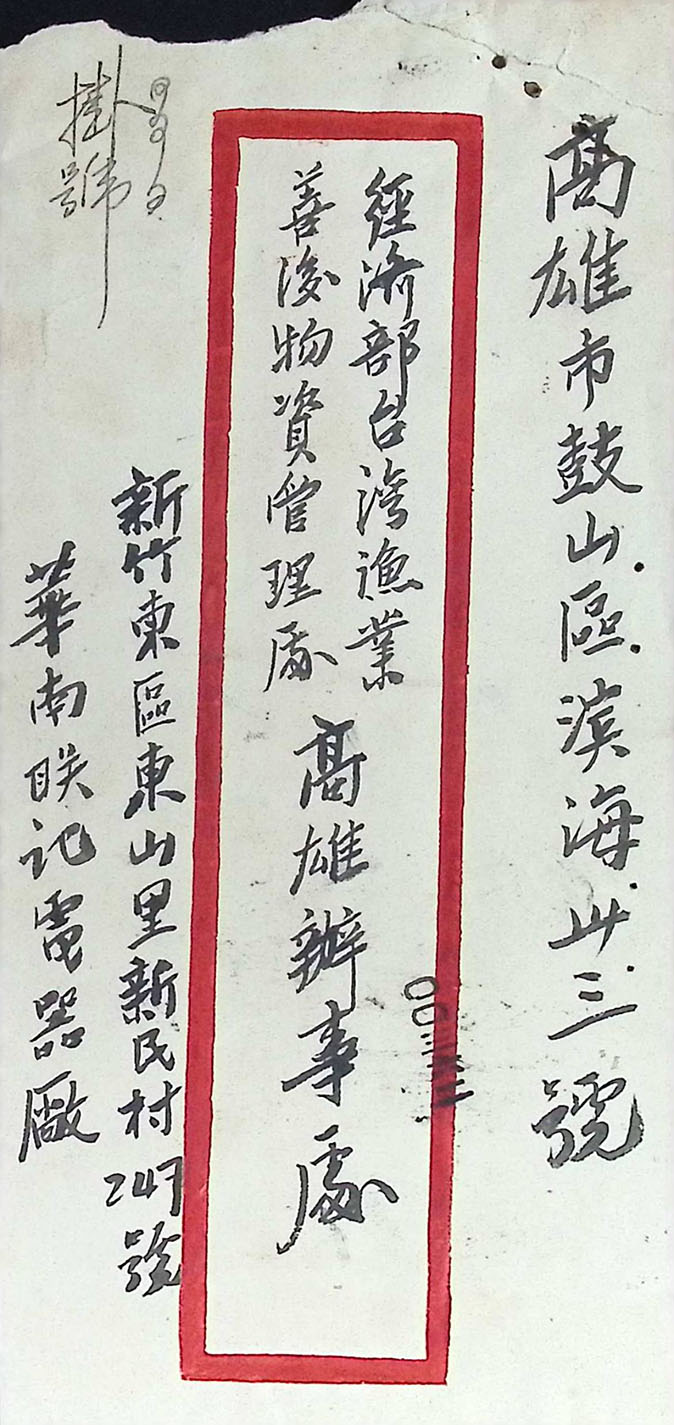 高雄市鼓山區濱海卅三號
經濟部台灣漁業
善後物資管理處
高雄辦事處
新竹東區東山里新民村247號
華南联記電器廠
掛號